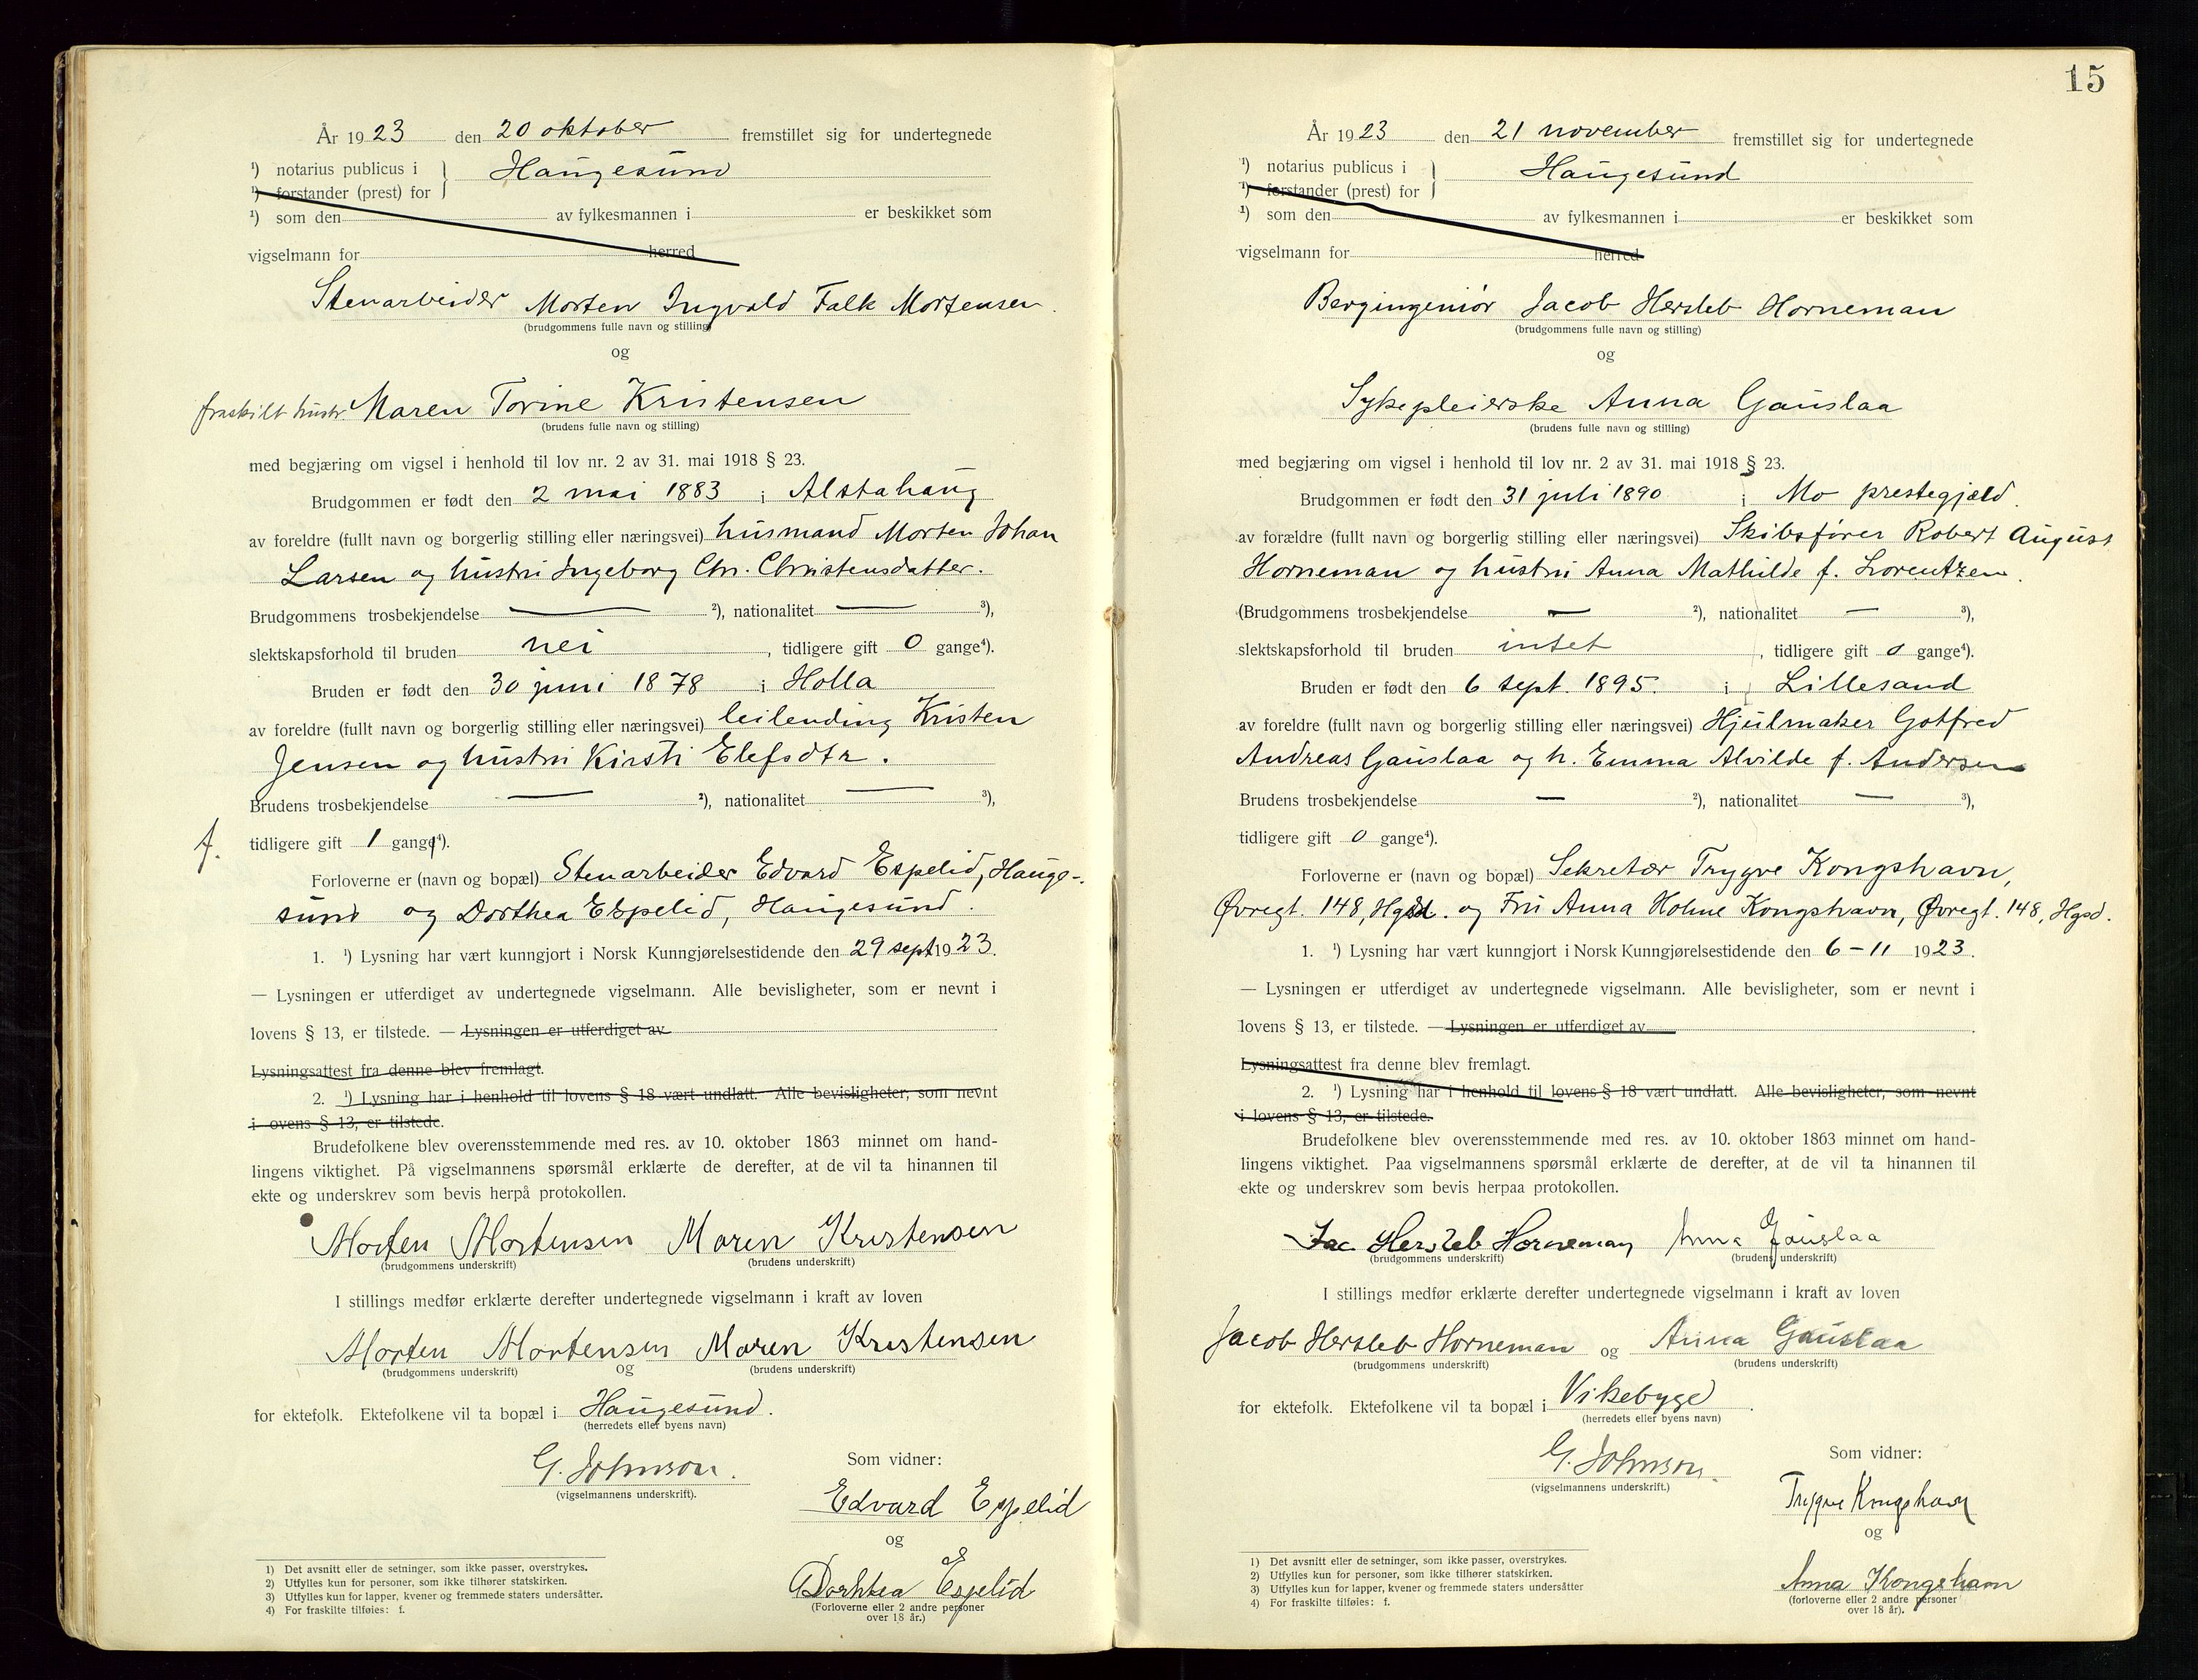 År 1923 den 20 oktober fremstillet sig for undertegnede
¹) notarius publicus i } Haugesund
¹) forstander (prest) for
¹) som den av fylkesmannen i er beskikket som
vigselmann for herred
Stenarbeider Morten Ingvald Falk Mortensen.
(brudgommens fulle navn og stilling)
og
fraskilt hustr. Maren Torine Kristensen
(brudens fulle navn og stilling)
med begjæring om vigsel i henhold til lov nr. 2 av 31. mai 1918 § 23.
Brudgommen er født den 2 mai 1883 i Alstahaug
av foreldre (fullt navn og borgerlig stilling eller næringsvei) husmand Morten Johan
Larsen og hustru Ingeborg Chr. Christensdatter.
Brudgommens trosbekjendelse — ²), nationalitet — ³),
slektskapsforhold til bruden nei, tidligere gift 0 gange⁴).
Bruden er født den 30 juni 1878 i Holla
av foreldre (fullt navn og borgerlig stilling eller næringsvei) leilending Kristen
Jensen og hustru Kirsti Elefsdtr.
Brudens trosbekjendelse — ²), nationalitet — ³),
f. tidligere gift 1 gang⁴).
Forloverne er (navn og bopæl) Stenarbeider Edvard Espelid, Hauge-
sund og Dorthea Espelid, Haugesund.
1. ¹) Lysning har vært kunngjort i Norsk Kunngjørelsestidende den 29 sept 1923.
— Lysningen er utferdiget av undertegnede vigselmann. Alle bevisligheter, som er nevnt i
lovens § 13, er tilstede. — Lysningen er utferdiget av
Lysningsattest fra denne blev fremlagt.
2. ¹) Lysning har i henhold til lovens § 18 vært undlatt. Alle bevisligheter, som nevnt
i ovens § 13, er tilstede.
Brudefolkene blev overensstemmende med res. av 10. oktober 1863 minnet om hand-
lingens viktighet. På vigselmannens spørsmål erklærte de derefter, at de vil ta hinannen til
ekte og underskrev som bevis herpå protokollen.
Morten Mortensen Maren Kristensen
(brudgommens underskrift) (brudens underskrift)
I stillings medfør erklærte derefter undertegnede vigselmann i kraft av loven
Morten Mortensen Maren Kristensen
(brudgommens underskrift) og (brudens underskrift)
for ektefolk. Ektefolkene vil ta bopæl i Haugesund.
(herredets eller byens navn)
G. Johnson.
(vigselmannens underskrift).
Som vidner:
Edvard Espelid
og
Dorhtea Espelid
(Forloverne eller 2 andre personer
over 18 år.)
1) Det avsnitt eller de setninger, som ikke passer, overstrykes.
2) Utfylles kun for personer, som ikke tilhører statskirken.
3) Utfylles kun for lapper, kvener og fremmede staters undersåtter.
4) For fraskilte tilføies: f.
15
År 1923 den 21 november fremstillet sig for undertegnede
¹) notarius publicus i } Haugesund
¹) forstander (prest) for
¹) som den av fylkesmannen i er beskikket som
vigselmann for herred
Bergingeniør Jacob Hersleb Horneman
(brudgommens fulle navn og stilling)
og
Sykepleierske Anna Gauslaa
(brudens fulle navn og stilling)
med begjæring om vigsel i henhold til lov nr. 2 av 31. mai 1918 § 23.
Brudgommen er født den 31 juli 1890 i Mo prestegjæld.
av forældre (fullt navn og borgerlig stilling eller næringsvei) Skibsfører Robert August
Horneman og hustru Anna Mathilde f. Lorentzen.
(Brudgommens trosbekjendelse — ²), nationalitet — ³),
slektskapsforhold til bruden intet, tidligere gift 0 gange⁴).
Bruden er født den 6 sept. 1895. i Lillesand
av foreldre (fullt navn og borgerlig stilling eller næringsvei) Hjulmaker Gotfred
Andreas Gauslaa og h. Emma Alvilde f. Andersen
Brudens trosbekjendelse — ²), nationalitet — ³),
tidligere gift 0 gange⁴).
Forloverne er (navn og bopæl) Sekretær Trygve Kongshavn,
Øvregt. 148, Hgsd. og Fru Anna Holme Kongshavn, Øvregt. 148, Hgsd.
1. ¹) Lysning har vært kunngjort i Norsk Kunngjørelsestidende den 6-11 1923.
— Lysningen er utferdiget av undertegnede vigselmann. Alle bevisligheter, som er nevnt i
lovens § 13, er tilstede. — Lysningen er utferdiget av
Lysningsattest fra denne blev fremlagt.
2. ¹) Lysning har i henhold til lovens § 18 vært undlatt. Alle bevisligheter, som nevnt
i lovens § 13, er tilstede.
Brudefolkene blev overensstemmende med res. av 10. oktober 1863 minnet om hand-
lingens viktighet. Paa vigselmannens spørsmål erklærte de derefter, at de vil ta hinannen til
ekte og underskrev som bevis herpaa protokollen.
Jac Hersleb Horneman Anna Gauslaa
(brudgommens underskrift) (brudens underskrift)
I stillings medfør erklærte derefter undertegnede vigselmann i kraft av loven
Jacob Hersleb Horneman og Anna Gauslaa
(brudgommens underskrift) (brudens underskrift)
for ektefolk. Ektefolkene vil ta bopæl i Vikebygd.
(herredets eller byens navn)
G. Johnson.
(vigselmannens underskrift.)
Som vidner:
Trygve Kongshavn
og
Anna Kongshavn
(forloverne eller 2 andre personer
over 18 år).
1) Det avsnitt eller de setninger, som ikke passer, overstrykes.
2) Utfylles kun for personer, som ikke tilhører statskirken.
3) Utfylles kun for lapper, kvener og fremmede staters undersåtter
4) For fraskilte tilføies: f.